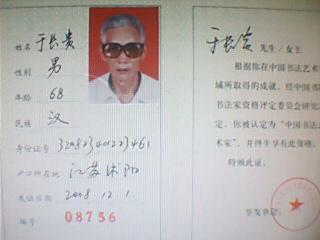 姓名 于长贵
性别 男
年龄 68
民族 汉
户口所在地 江苏沭阳
发证日期 2008.12.1.
编号 08756
先生/女士
根据你在中国书法艺术
域所取得的成就。经中国
书法家资格评定委员会研究
定，你被认定为“中国书法
术家”，并终生享有此资格。
特颁此证。
签发单位：